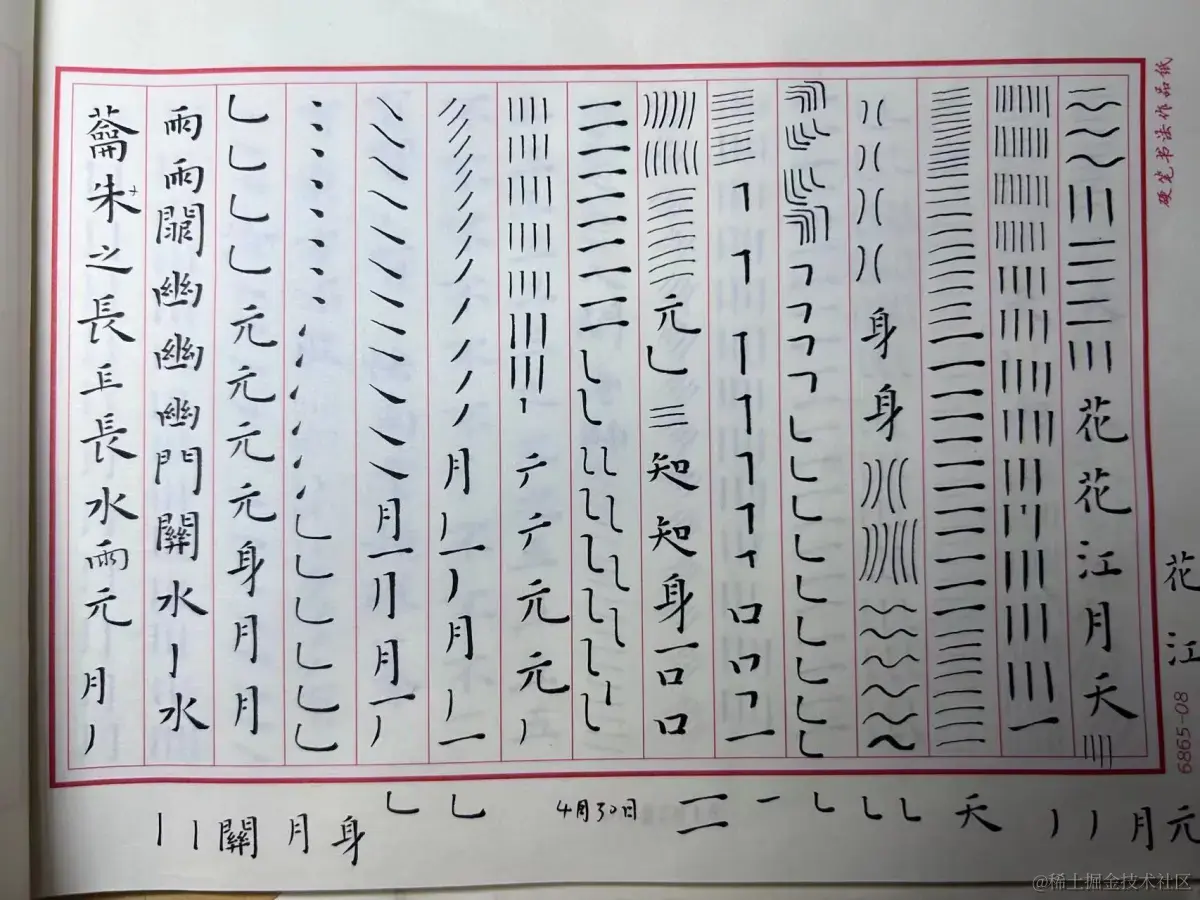 硬笔书法作品纸
花江
6865-08
花花江月天
身身
口
元知知身一口口
元元
月月
月月
元元元元身月月
雨雨幽幽幽門關水水
朱之長長水雨元月
關月身 4月30日 二一天月元
@稀土掘金技术社区